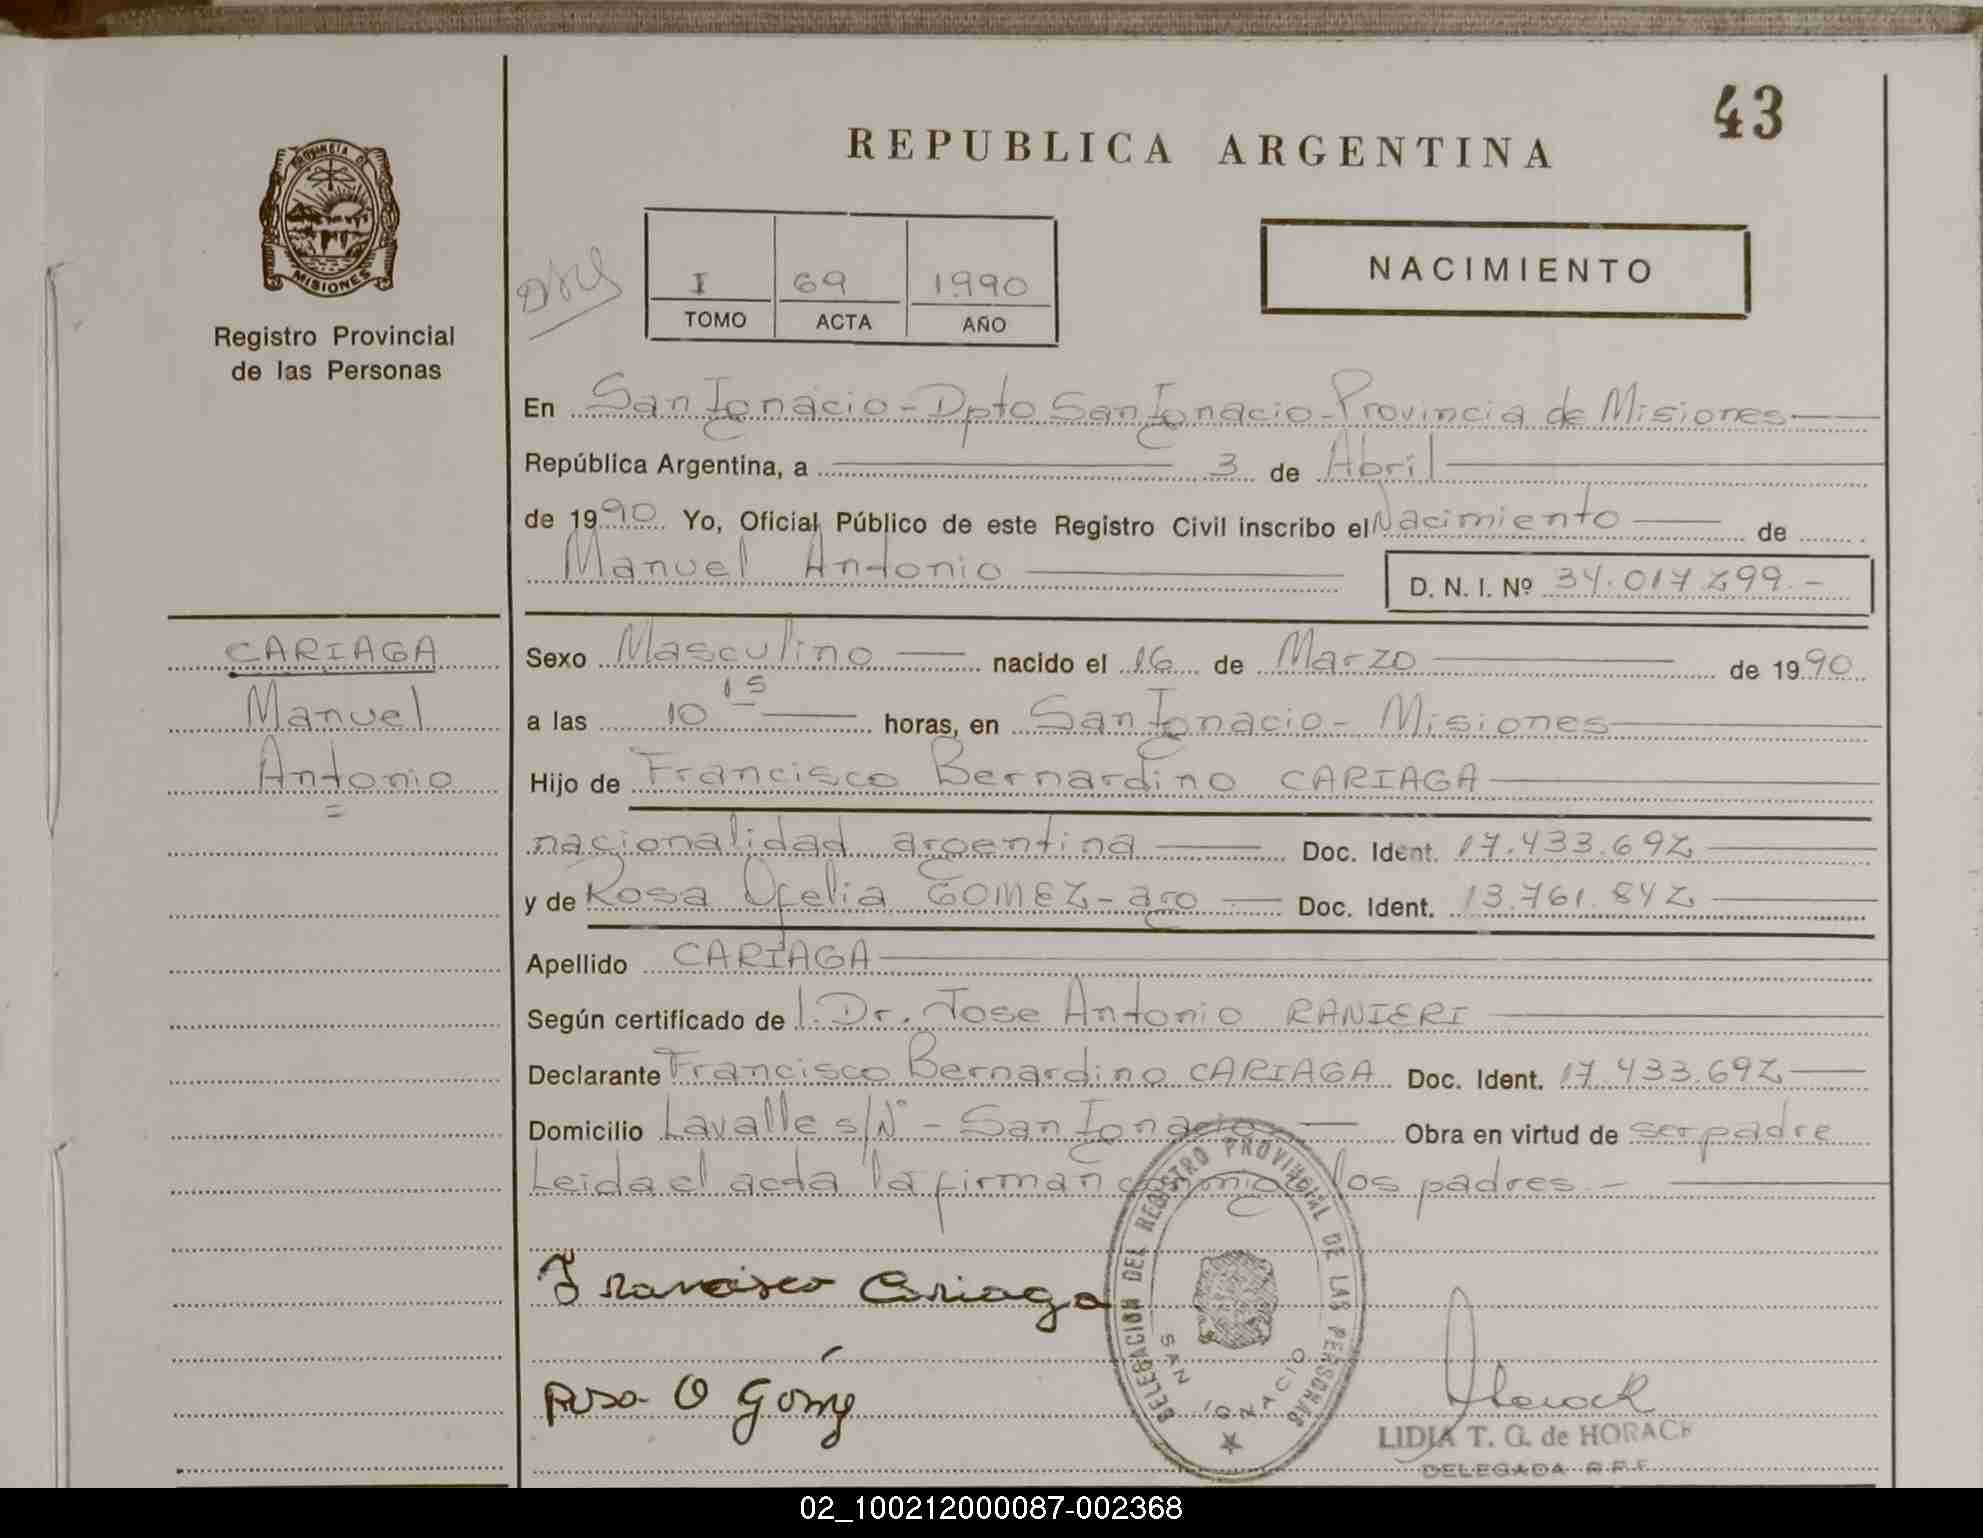 43
REPUBLICA ARGENTINA
PROVINCIA DE
MISIONES
Registro Provincial
de las Personas
I 69 1990
TOMO ACTA AÑO
NACIMIENTO
En San Ignacio - Dpto San Ignacio - Provincia de Misiones
República Argentina, a 3 de Abril
de 1990 Yo, Oficial Público de este Registro Civil inscribo el Nacimiento de
Manuel Antonio D. N. I. Nº 34.017.299.-
CARIAGA
Manuel
Antonio
=
Sexo Masculino nacido el 16 de Marzo de 1990
a las 10 15 horas, en San Ignacio - Misiones
Hijo de Francisco Bernardino CARIAGA
nacionalidad argentina Doc. Ident. 17.433.692
y de Rosa Ofelia GOMEZ - arg Doc. Ident. 13.761.842
Apellido CARIAGA
Según certificado de l. Dr. Jose Antonio RANIERI
Declarante Francisco Bernardino CARIAGA Doc. Ident. 17.433.692
Domicilio Lavalle s/Nº - San Ignacio Obra en virtud de ser padre
Leida el acta la firman conmigo los padres.-
Francisco Cariaga
Rosa O Gómez
DELEGACION DEL REGISTRO PROVINCIAL DE LAS PERSONAS
SAN IGNACIO
Horack
LIDIA T. G. de HORACK
DELEGADA R.P.F.
02_100212000087-002368